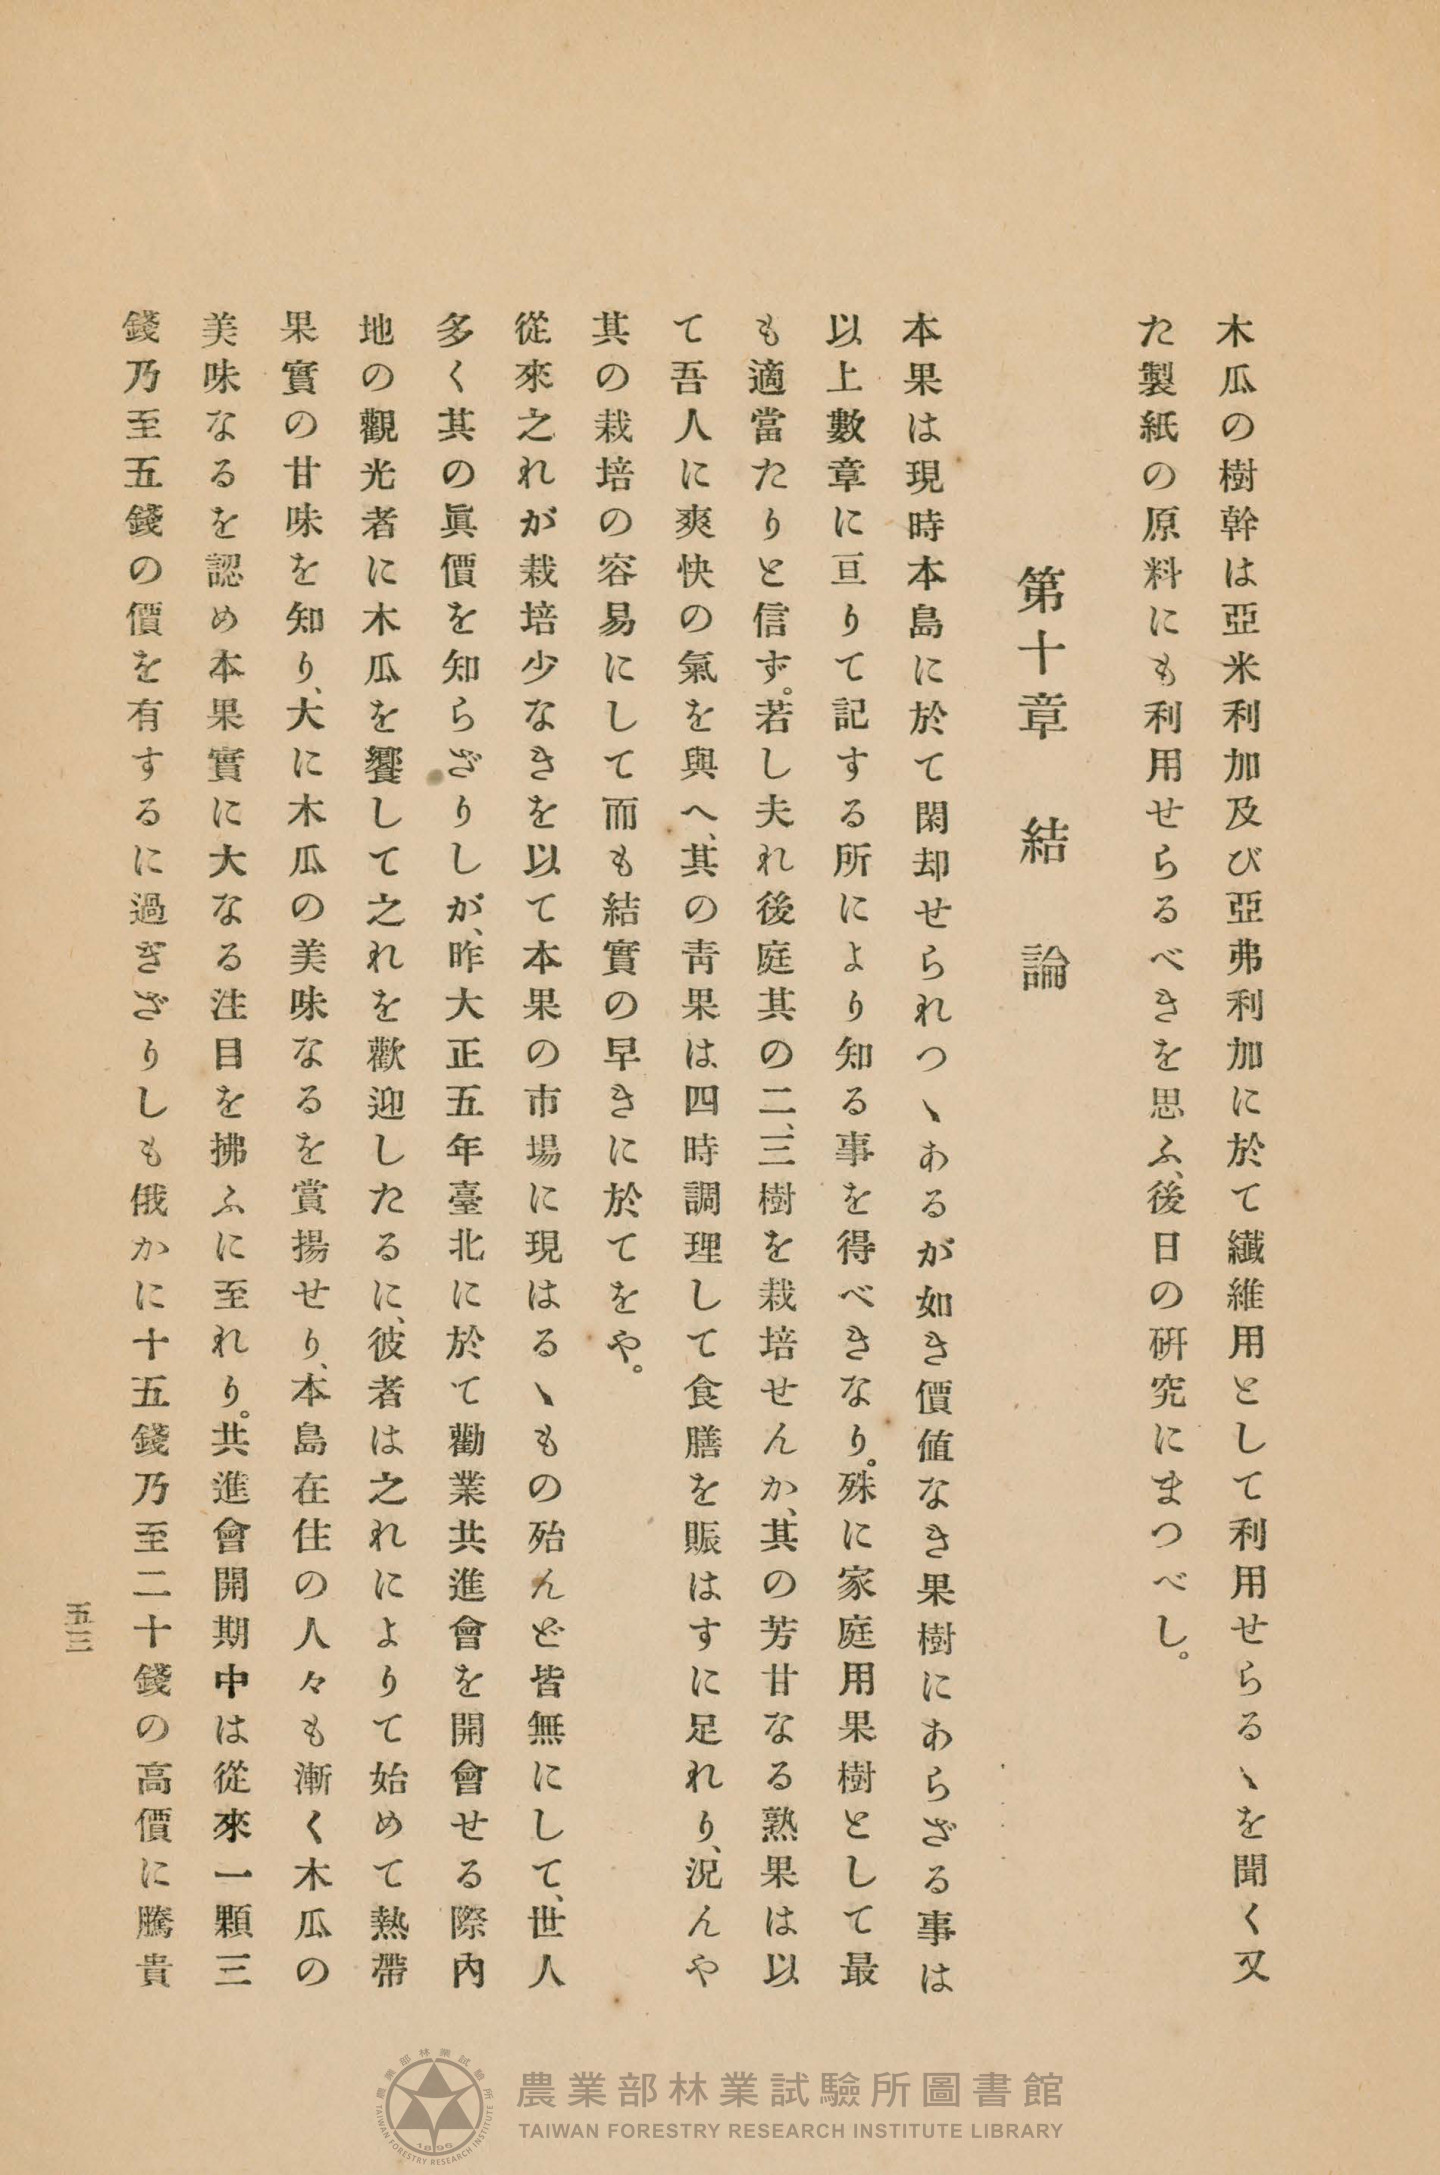 木瓜の樹幹は亞米利加及び亞弗利加に於て纎維用として利用せらるヽを聞く又
た製紙の原料にも利用せらるべきを思ふ、後日の硏究にまつべし。
第十章　結論
本果は現時本島に於て閑却せられつヽあるが如き價値なき果樹にあらざる事は
以上數章に亘りて記する所により知る事を得べきなり。殊に家庭用果樹として最
も適當たりと信ず。若し夫れ後庭其の二、三樹を栽培せんか、其の芳甘なる熟果は以
て吾人に爽快の氣を與へ、其の靑果は四時調理して食膳を賑はすに足れり、況んや
其の栽培の容易にして而も結實の早きに於てをや。
從來之れが栽培少なきを以て本果の市場に現はるヽもの殆んど皆無にして、世人
多く其の眞價を知らざりしが、昨大正五年臺北に於て勸業共進會を開會せる際內
地の觀光者に木瓜を饗して之れを歡迎したるに、彼者は之れによりて始めて熱帶
果實の甘味を知り、大に木瓜の美味なるを賞揚せり、本島在住の人々も漸く木瓜の
美味なるを認め本果實に大なる注目を拂ふに至れり。共進會開期中は從來一顆三
錢乃至五錢の價を有するに過ぎざりしも俄かに十五錢乃至二十錢の高價に騰貴
五三
農業部林業試驗所圖書館
TAIWAN FORESTRY RESEARCH INSTITUTE LIBRARY
農業部林業試驗所
TAIWAN FORESTRY RESEARCH INSTITUTE
1896